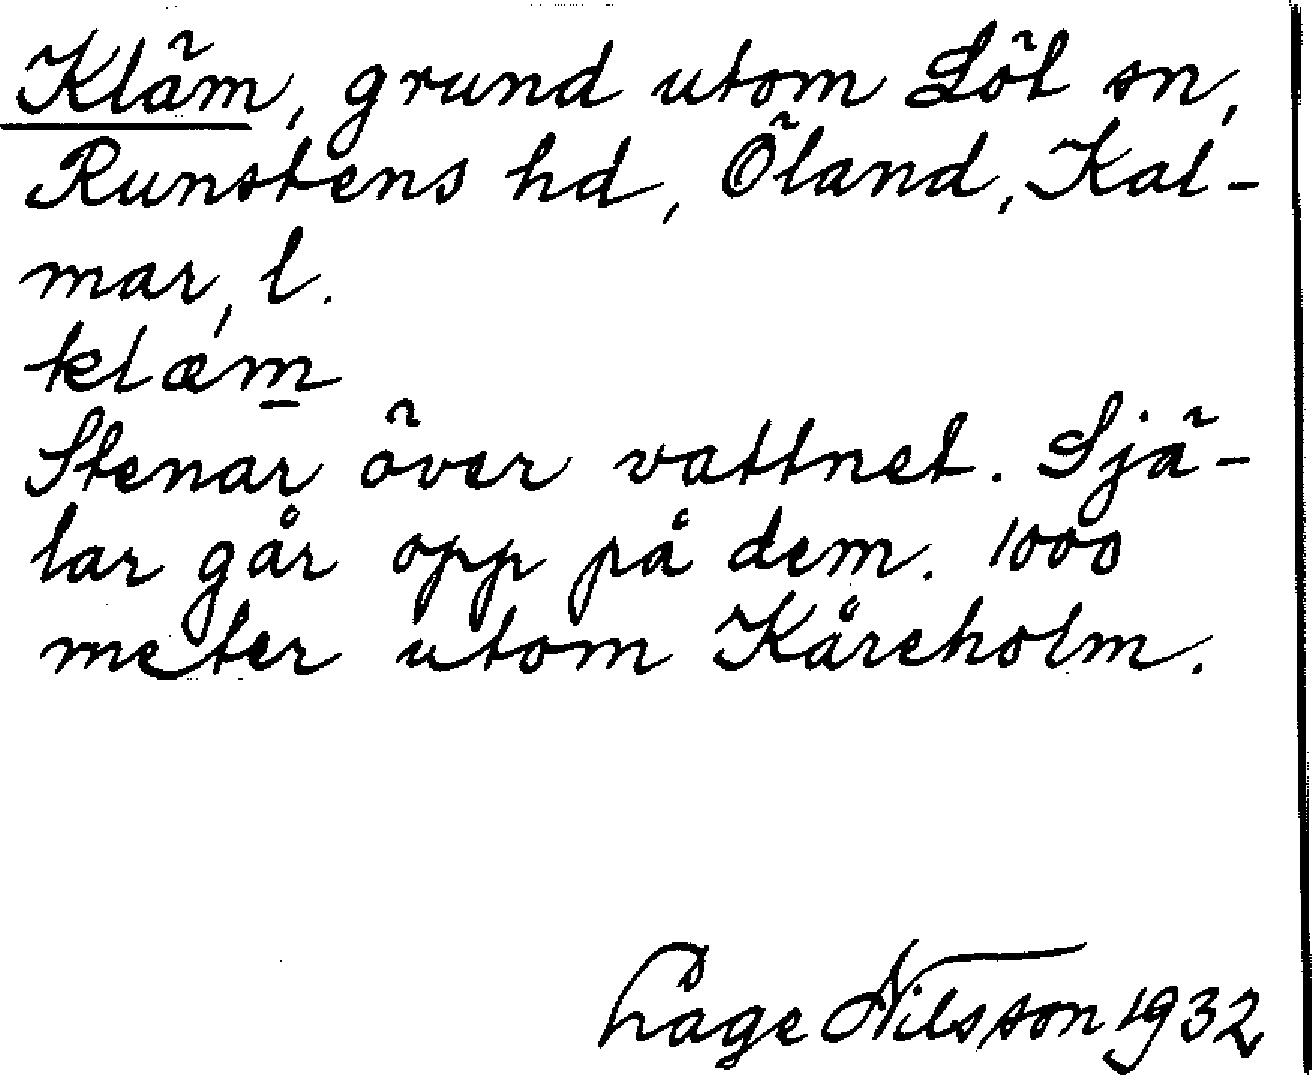 Kläm, grund utom Löt sn,
Runstens hd, Öland, Kal-
mar, l.
klæm
Stenar över vattnet. Sjä-
lar går opp på dem. 1000
meter utom Kåreholm.
Låge Nilsson 1932